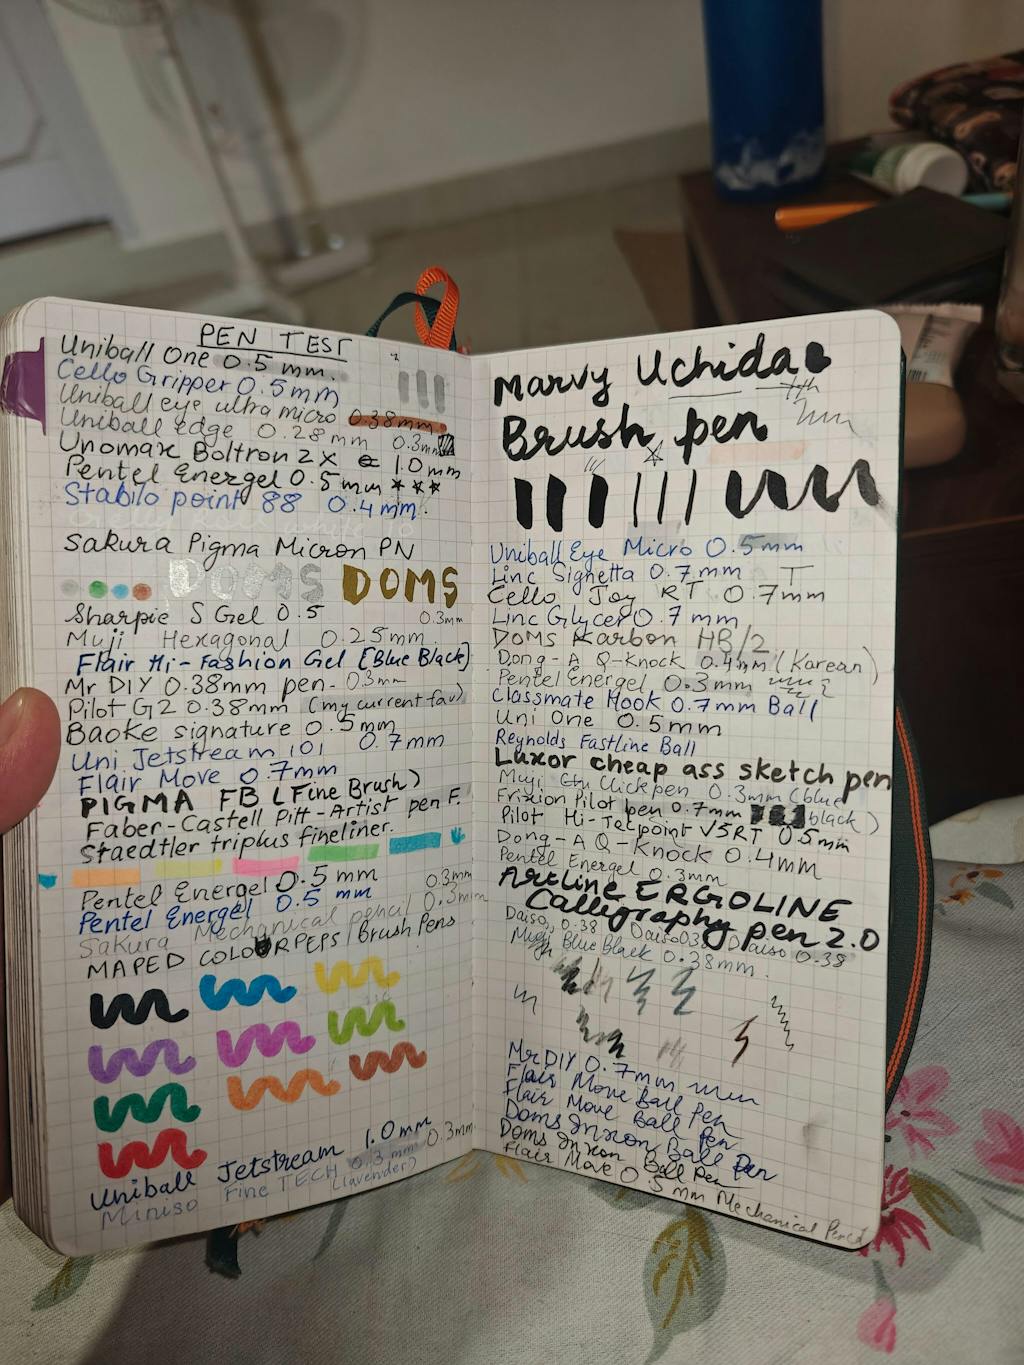 PEN TEST
Uniball One 0.5 mm.
Cello Gripper 0.5mm
Uniball eye ultra micro 0.38mm
Uniball Edge 0.28mm 0.3mm
Unomax Boltron 2X 1.0mm
Pentel Energel 0.5mm
Stabilo point 88 0.4mm.
white
Sakura Pigma Micron PN
DOMS DOMS
Sharpie S Gel 0.5 0.3mm
Muji Hexagonal 0.25mm.
Flair Hi-Fashion Gel [Blue Black]
Mr DIY 0.38mm pen- 0.3mm
Pilot G2 0.38mm (my current fav)
Baoke signature 0.5mm
Uni Jetstream 101 0.7mm
Flair Move 0.7mm
PIGMA FB (Fine Brush)
Faber-Castell Pitt-Artist pen F.
Staedtler triplus fineliner.
Pentel Energel 0.5mm 0.3mm
Pentel Energel 0.5 mm 0.3mm
Sakura Mechanical pencil
MAPED COLOURPEPS/Brush Pens
Uniball Jetstream 1.0mm 0.3mm
Miniso Fine TECH 0.3mm
(lavender)
Marvy Uchida
Brush pen
Uniball Eye Micro 0.5mm
Linc Signetta 0.7mm T
Cello Joy RT 0.7mm
Linc Glycer 0.7mm
DOMS Karbon HB/2
Dong-A Q-Knock 0.4mm (Korean)
Pentel Energel 0.3mm
Classmate Hook 0.7mm Ball
Uni One 0.5mm
Reynolds Fastline Ball
Luxor cheap ass sketch pen
Muji Clickpen 0.3mm (blue
Frixion Pilot pen 0.7mm black)
Pilot Hi-Tecpoint V5RT 0.5mm
Dong-A Q-Knock 0.4mm
Pentel Energel 0.3mm
Artline ERGOLINE
Calligraphy pen 2.0
Daiso, 0.38 Daiso 0.38 Daiso 0.38
Muji Blue Black 0.38mm.
Mr DIY 0.7mm
Flair Move Ball Pen
Flair Move Ball Pen
Doms Inxon Ball Pen
Doms Inxon Ball Pen
Flair Move 0.5mm Mechanical Pencil